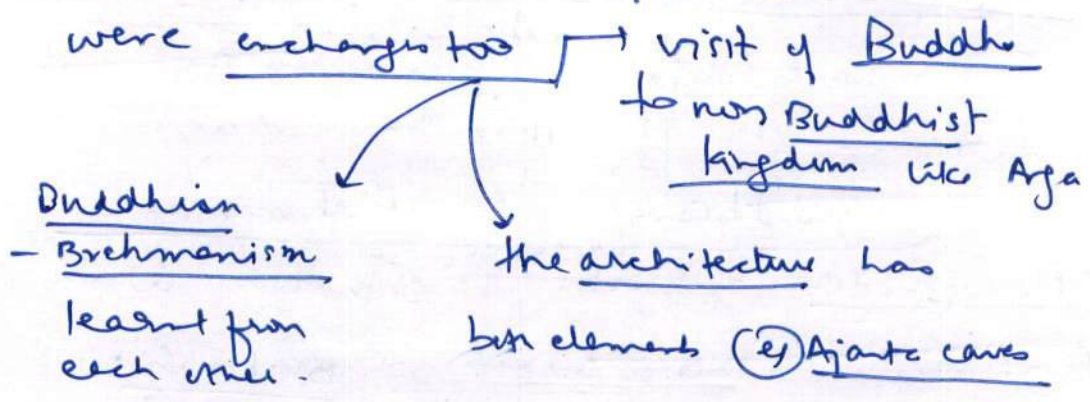 were exchanges too
visit of Buddha
to non Buddhist
kingdom like Anga
Buddhism
- Brahmanism
learnt from
each other.
the architecture has
both elements (eg) Ajanta caves